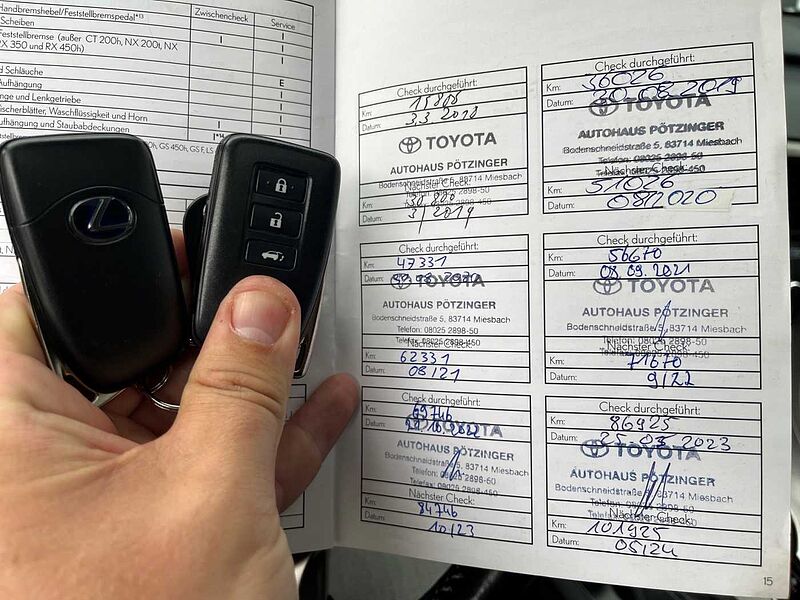 Handbremshebel/Feststellbremspedal*¹³
Zwischencheck
Service
Scheiben
I
Feststellbremse (außer CT 200h, NX 200t, NX
RX 350 und RX 450h)
I
I
d Schläuche
I
Aufhängung
E
I
nge und Lenkgetriebe
I
ischerblätter, Waschflüssigkeit und Horn
I
ufhängung und Staubabdeckungen
I*¹⁴
I
GS 450h, GS F, LS
Check durchgeführt:
Km:
Datum: 3.3 2018
TOYOTA
AUTOHAUS PÖTZINGER
Bodenschneidstraße 5, 83714 Miesbach
Nächster Check:
Km: 30.000
Datum: 3/2019
Check durchgeführt:
Km: 36026
Datum: 20.08.2019
TOYOTA
AUTOHAUS PÖTZINGER
Bodenschneidstraße 5, 83714 Miesbach
Telefon: 08025 2898-50
Nächster Check:
Km: 51026
Datum: 08/2020
Check durchgeführt:
Km: 47331
Datum:
TOYOTA
AUTOHAUS PÖTZINGER
Bodenschneidstraße 5, 83714 Miesbach
Telefon: 08025 2898-50
Nächster Check:
Km: 62331
Datum: 08/21
Check durchgeführt:
Km: 56670
Datum: 08.09.2021
TOYOTA
AUTOHAUS PÖTZINGER
Bodenschneidstraße 5, 83714 Miesbach
Telefon: 08025 2898-50
Nächster Check:
Km: 71670
Datum: 9/22
Check durchgeführt:
Km: 69746
Datum:
TOYOTA
AUTOHAUS PÖTZINGER
Bodenschneidstraße 5, 83714 Miesbach
Telefon: 08025 2898-50
Nächster Check:
Km: 84746
Datum: 10/23
Check durchgeführt:
Km: 86925
Datum: 25.05.2023
TOYOTA
AUTOHAUS PÖTZINGER
Bodenschneidstraße 5, 83714 Miesbach
Telefon: 08025 2898-50
Nächster Check:
Km: 101925
Datum: 05/24
15